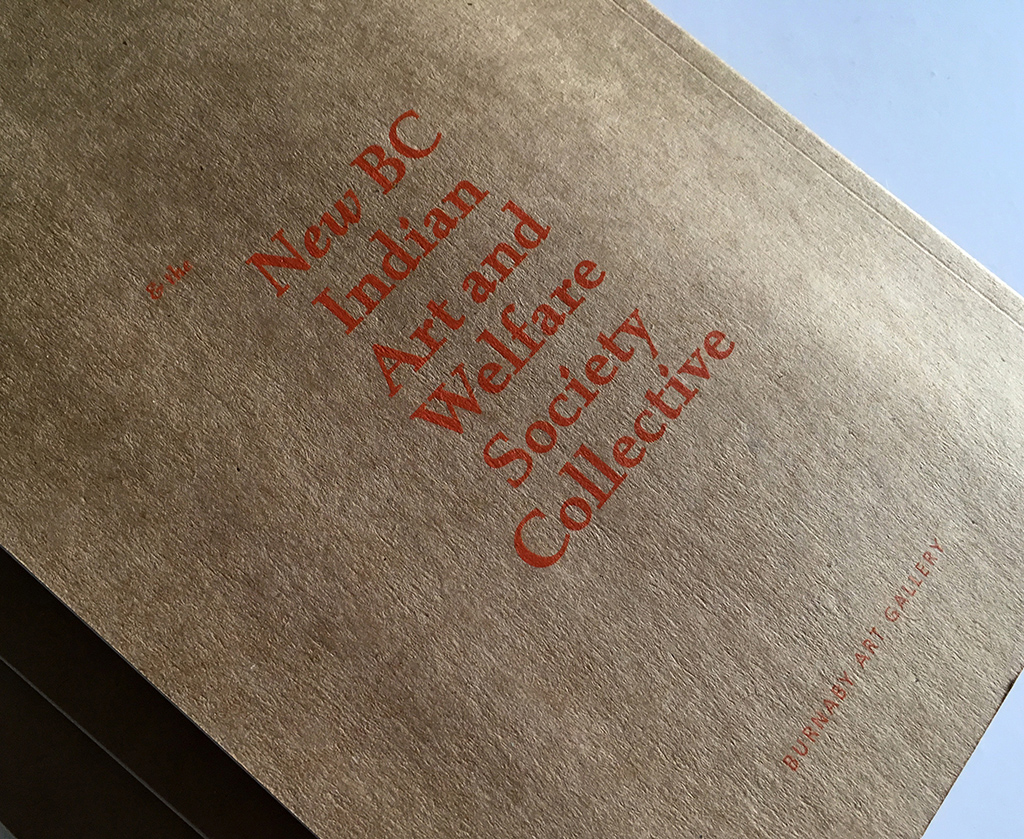 & the
New BC
Indian
Art and
Welfare
Society
Collective
BURNABY ART GALLERY